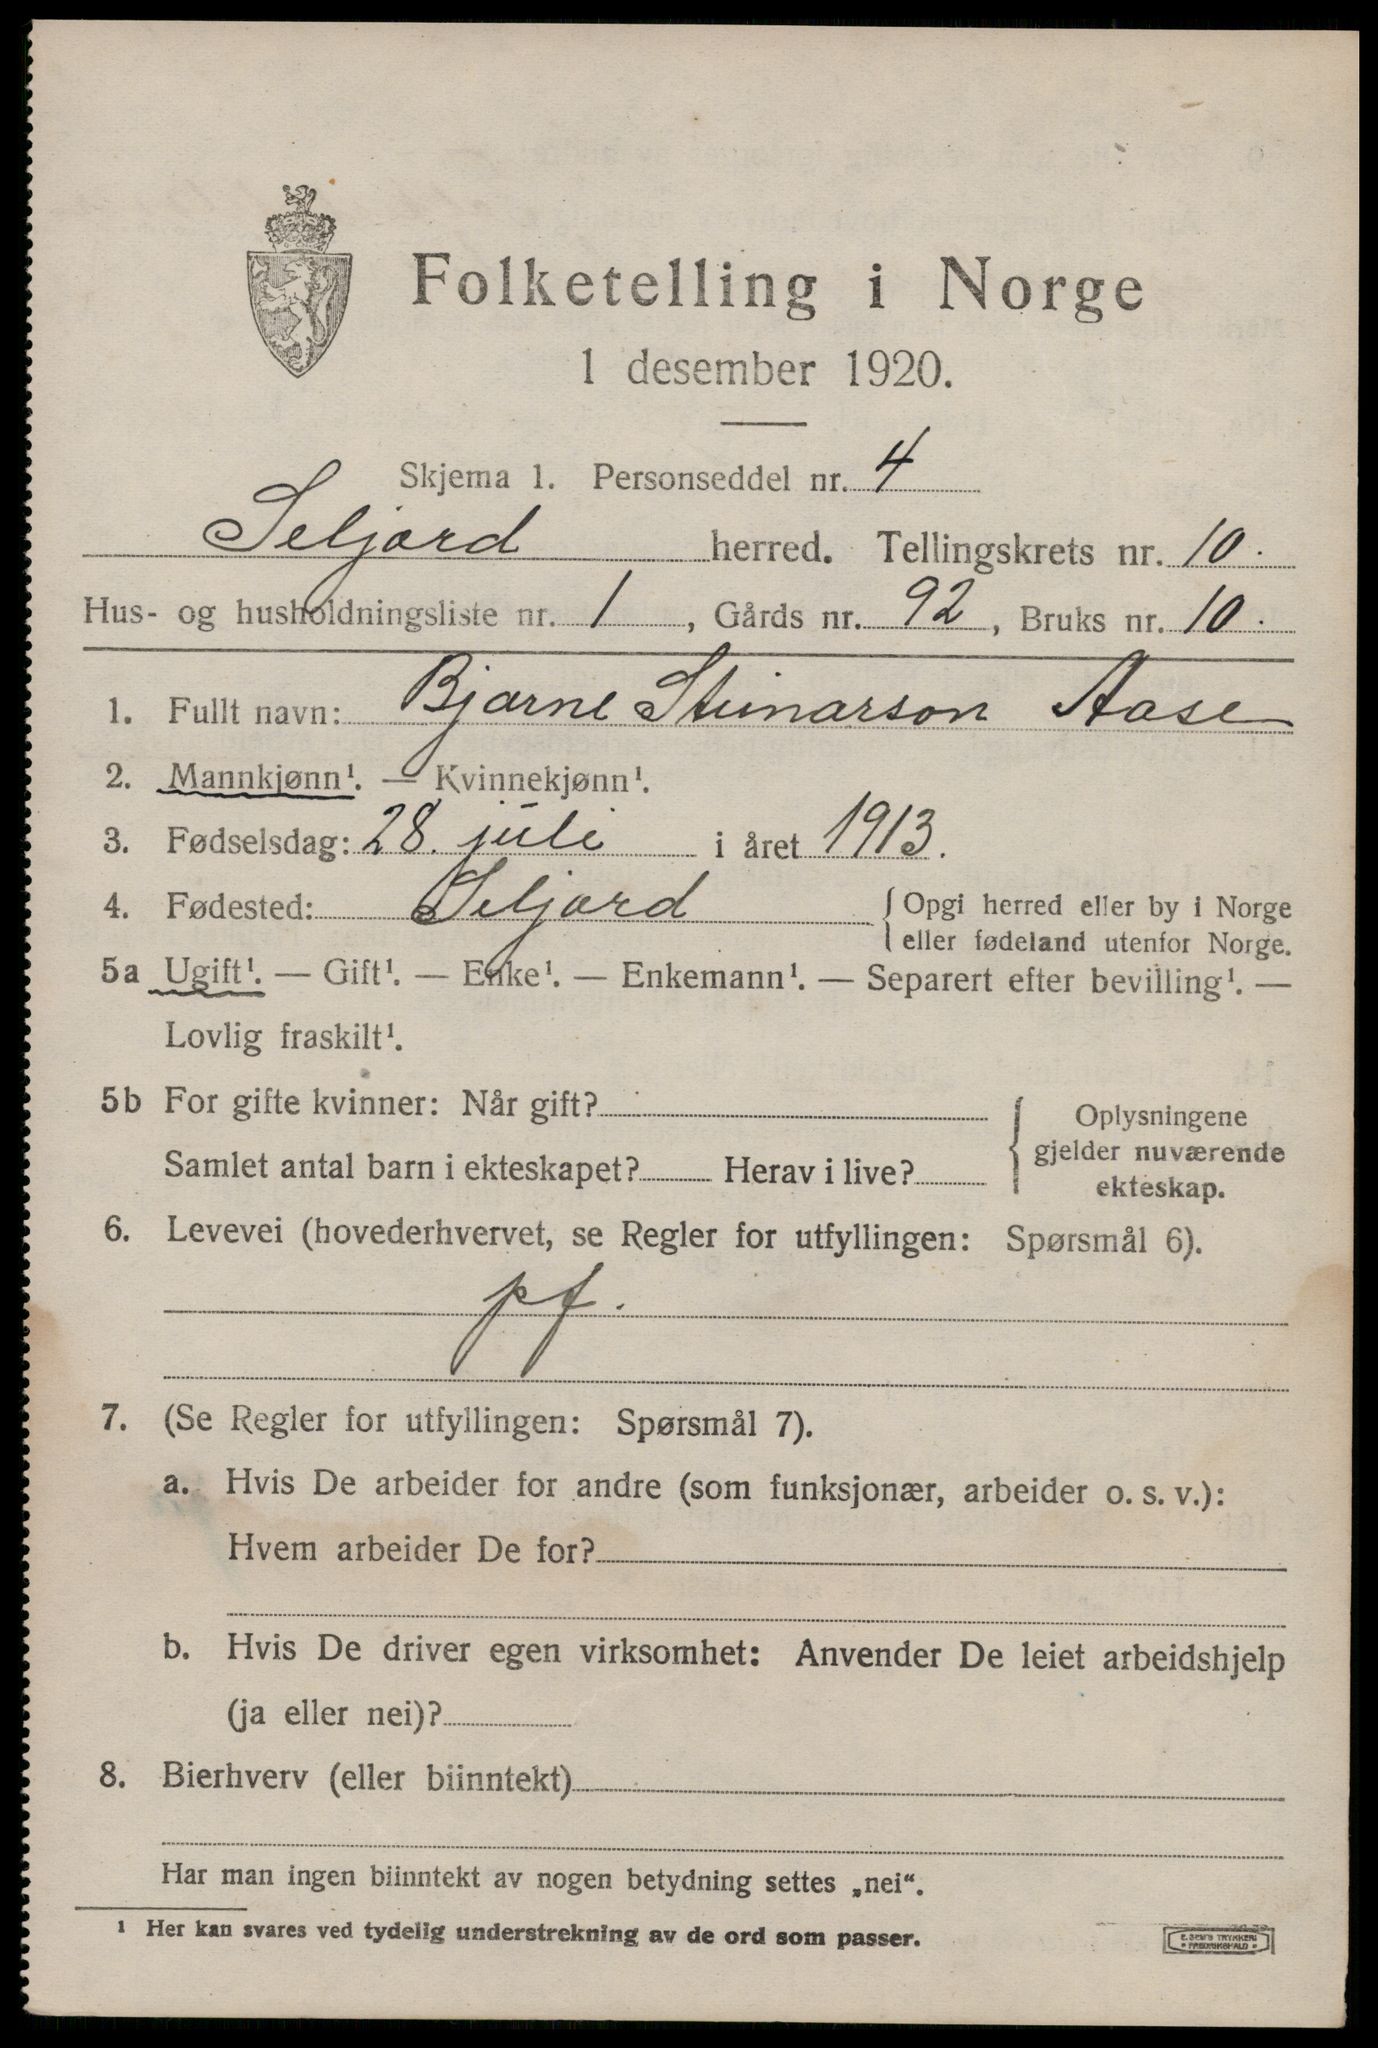 Folketelling i Norge
1 desember 1920.
Skjema 1. Personseddel nr. 4
Seljord herred. Tellingskrets nr. 10.
Hus- og husholdningsliste nr. 1, Gårds nr. 92, Bruks nr. 10.
1. Fullt navn: Bjarne Steinarson Aase
2. Mannkjønn¹. — Kvinnekjønn¹.
3. Fødselsdag: 28. juli i året 1913.
4. Fødested: Seljord { Opgi herred eller by i Norge
eller fødeland utenfor Norge.
5a Ugift¹. — Gift¹. — Enke¹. — Enkemann¹. — Separert efter bevilling¹. —
Lovlig fraskilt¹.
5b For gifte kvinner: Når gift? { Oplysningene
gjelder nuværende
ekteskap.
Samlet antal barn i ekteskapet? Herav i live?
6. Levevei (hovederhvervet, se Regler for utfyllingen: Spørsmål 6).
pf.
7. (Se Regler for utfyllingen: Spørsmål 7).
a. Hvis De arbeider for andre (som funksjonær, arbeider o. s. v.):
Hvem arbeider De for?
b. Hvis De driver egen virksomhet: Anvender De leiet arbeidshjelp
(ja eller nei)?
8. Bierhverv (eller biinntekt)
Har man ingen biinntekt av nogen betydning settes „nei“.
¹ Her kan svares ved tydelig understrekning av de ord som passer.
E. SEM'S TRYKKERI
• FREDRIKSHALD •